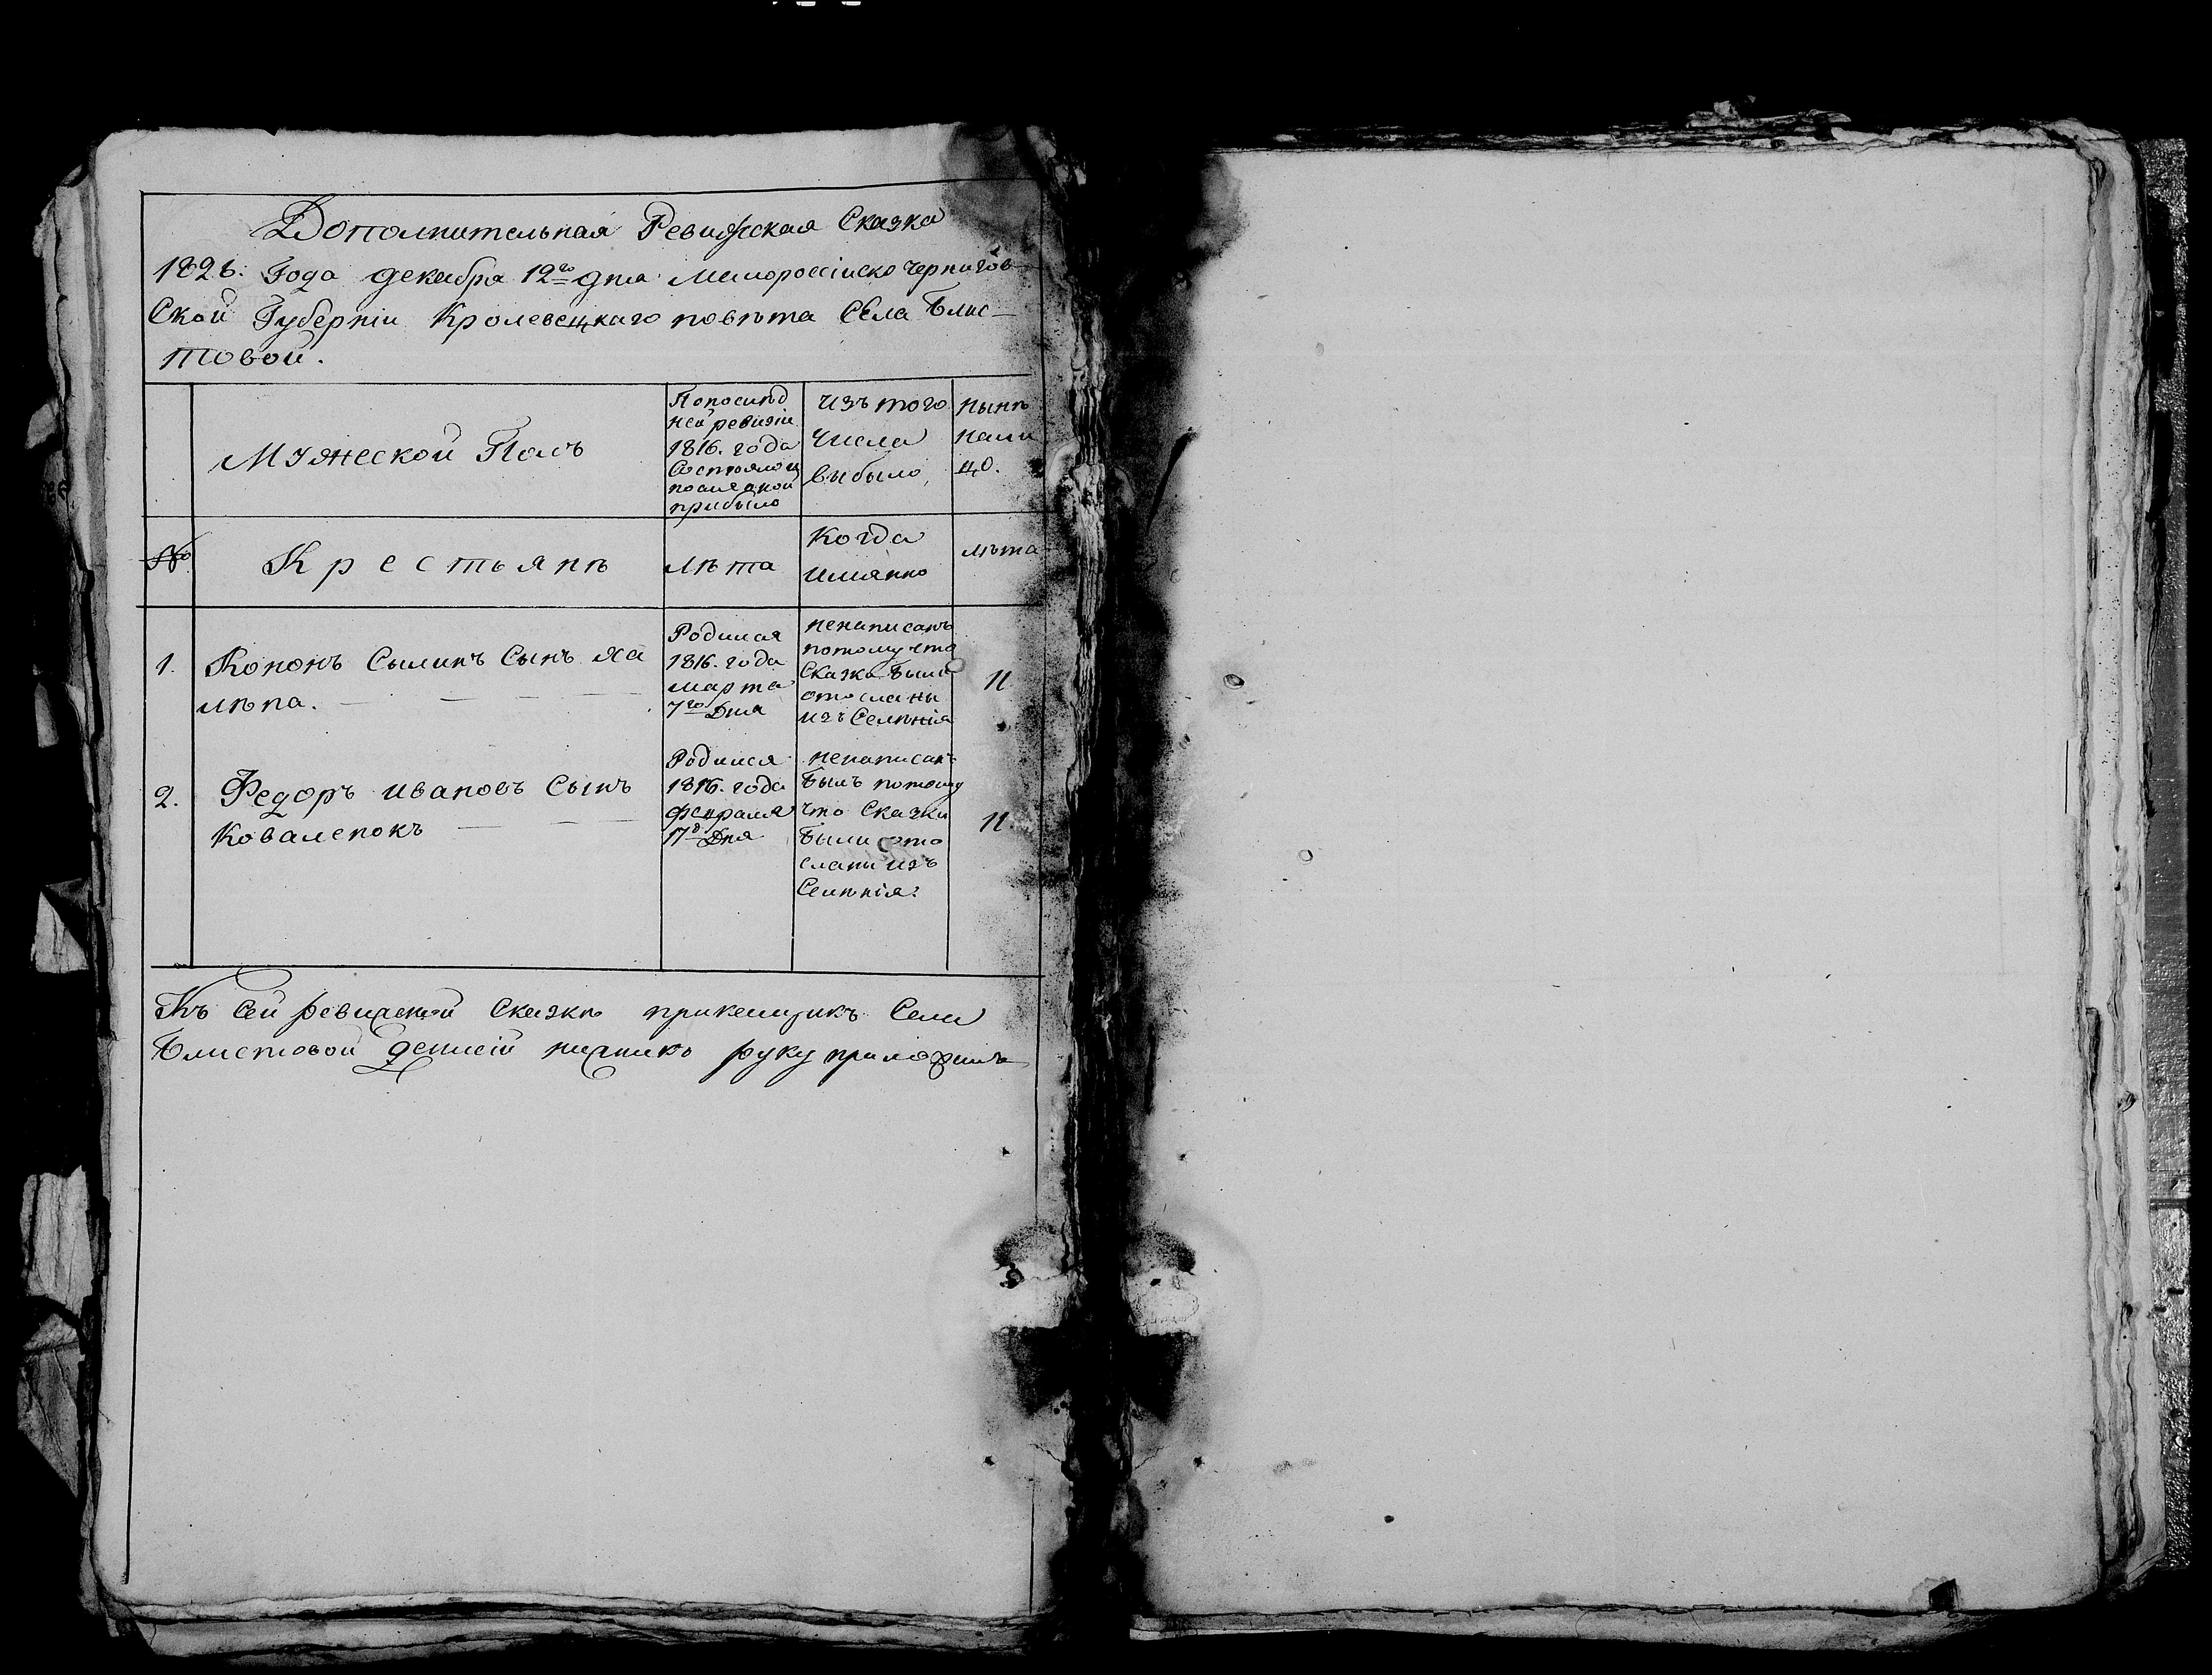 Дополнительная Ревизская Сказка
1826. Года декабря 12го дня Малороссійско Чернигов-
Ской Губерніи Кролевецкаго повѣта Села Блис-
товой.
Мужеской Полъ
Попослѣд
ней ревизіи
1816. года
Состояло и
послѣ оной
прибыло
изъ того
Числа
выбыло,
нынѣ
нали
цо.
№
Крестьянѣ
лѣта
Когда
имянно
лѣта
1.
Кононъ Силинъ Сынъ Ха
лѣпа.
Родился
1816. года
марта
7го Дня
ненаписанъ
потому что
Сказки были
отосланы
изъ Селѣнія
11
2.
Федоръ ивановъ Сынъ
Коваленокъ
Родился
1816. года
февраля
17 Дня
ненаписанъ
былъ потому
что Сказки
были ото
слани изъ
Селѣнія.
11.
Къ Сей ревизской Сказкѣ прикащикъ Села
Блистовой руку приложилъ